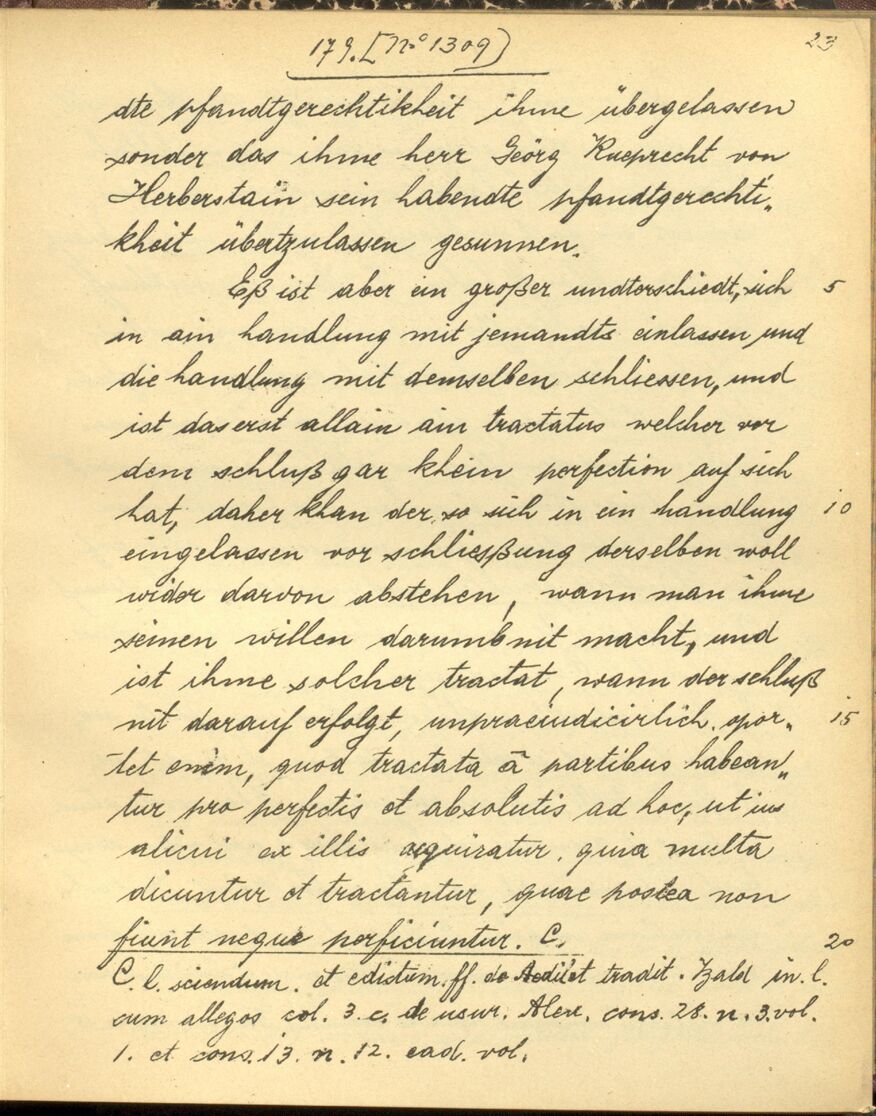 179. [No 1309)
23
dte pfandtgerechtikheit ihme übergelassen
sonder das ihme herr Geörg Rueprecht von
Herberstain sein habendte pfandtgerechti„
kheit übertzulassen gesunnen.
Eß ist aber ein großer undterschiedt, sich 5
in ain handlung mit jemandts einlassen und
die handlung mit demselben schliessen, und
ist das erst allain ain tractatus welcher vor
dem schluß gar khein perfection auf sich
hat, daher khan der so sich in ein handlung 10
eingelassen vor schliesßung derselben woll
wider darvon abstehen, wann man ihme
seinen willen darumb nit macht, und
ist ihme solcher tractat, wann der schluß
nit darauf erfolgt, unpraeiudicirlich. opor„ 15
tet enim, quod tractata ā partibus habean„
tur pro perfectis et absolutis ad hoc, ut ius
alicui ex illis acquiratur, quia multa
dicuntur et tractantur, quae postea non
fiunt neque perficiuntur. C. 20
C. l. sciendum. et edictum. ff. de et tradit. Bald in. l.
cum allegos col. 3. c. de usur. Alex. cons. 28. n. 3. vol.
1. et cons. 13. n. 12. ead. vol.